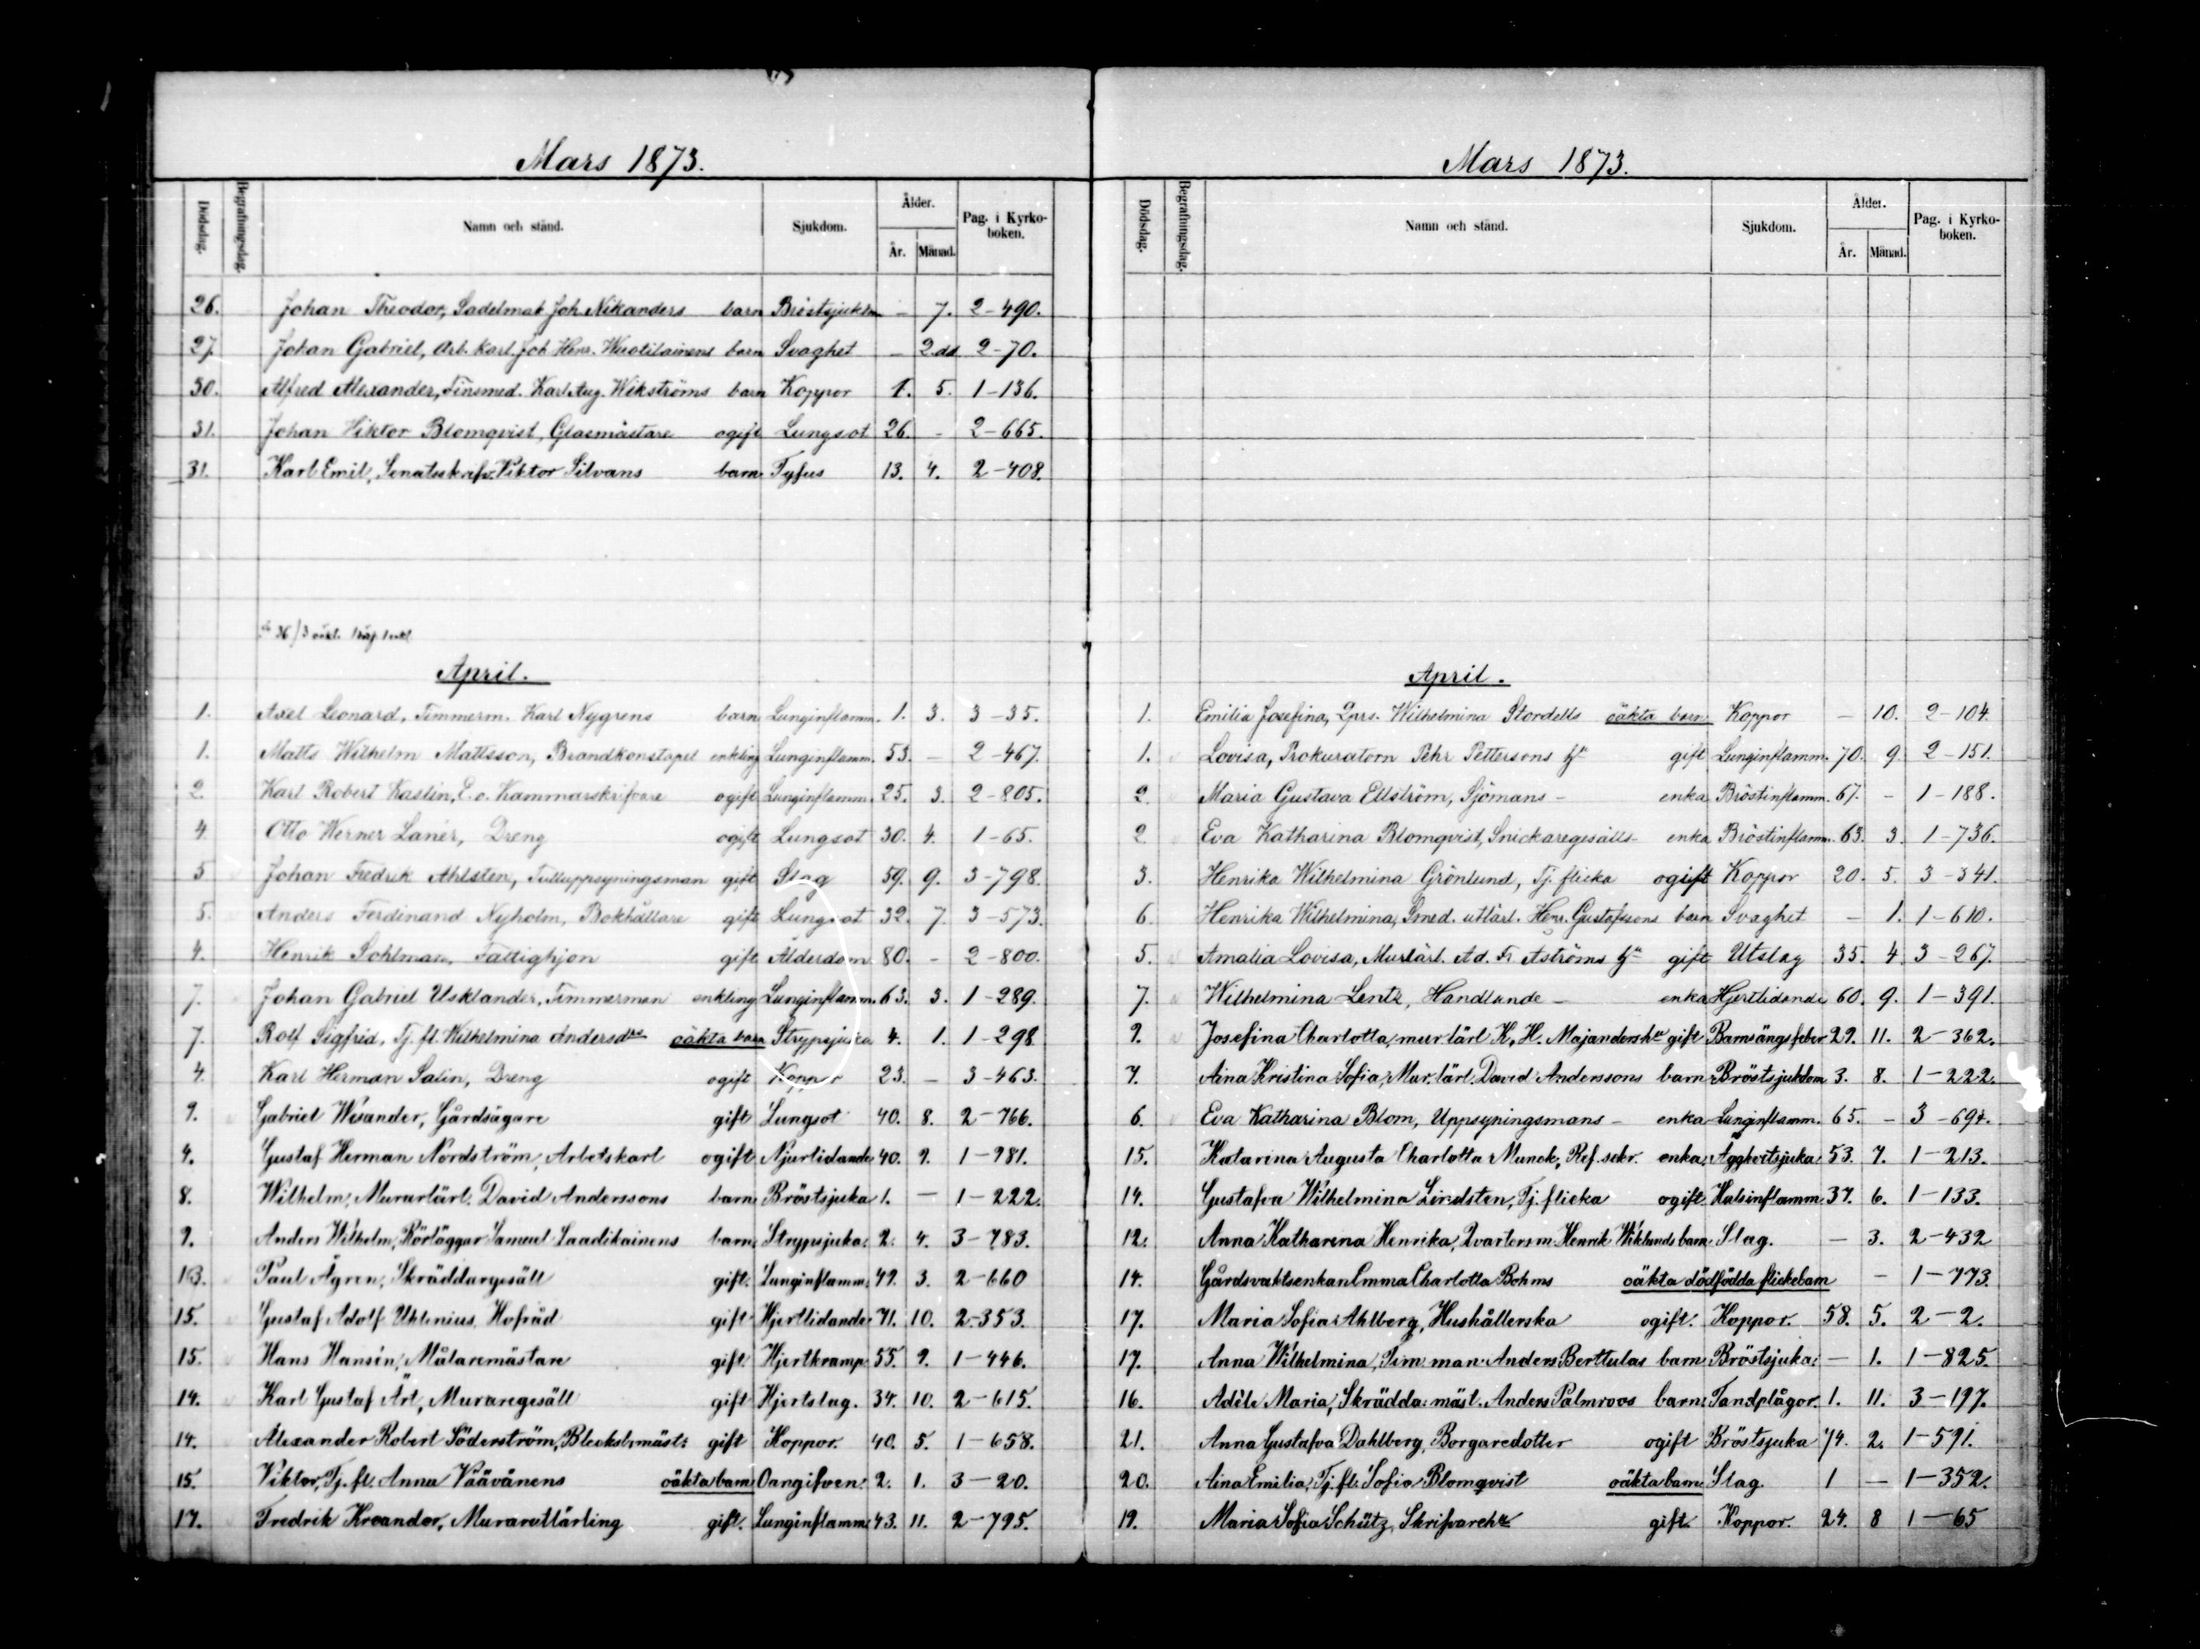 Mars 1873.
Dödsdag. Begrafningsdag. Namn och stånd. Sjukdom. Ålder. År. Månad. Pag. i Kyrkoboken.
26. Johan Theodor, Sadelmak Joh. Nikanders barn Bröstsjukdm – 7. 2–490.
27. Johan Gabriel, Arb. karl Joh. Henr. Wuotilainens barn Svaghet – 2 dd 2–70.
30. Alfred Alexander, Finsmed. Karl Aug. Wikströms barn Koppor 1. 5. 1–136.
31. Johan Viktor Blomqvist, Glasmästare ogift Lungsot 26. – 2–665.
31. Karl Emil, Senatsskrifv. Viktor Silvans barn Tyfus 13. 4. 2–408.
April.
1. Axel Leonard, Timmerm. Karl Nygrens barn Lunginflamm. 1. 3. 3–35.
1. Matts Wilhelm Mattsson, Brandkonstapel enkling Lunginflamm. 53. – 2–467.
2. Karl Robert Kastin, E. o. Kammarskrifvare ogift Lunginflamm. 25. 3. 2–805.
4. Otto Werner Lanér, Dreng ogift Lungsot 30. 4. 1–65.
5 Johan Fredrik Ahlsten, Tulluppsyningsman gift Slag 59. 9. 3–798.
5. Anders Ferdinand Nyholm, Bokhållare gift Lungsot 32. 7. 3–573.
4. Henrik Sohlman, Fattighjon gift Ålderdom 80. – 2–800.
7. Johan Gabriel Usklander, Timmerman enkling Lunginflamm. 63. 3. 1–289.
7. Rolf Sigfrid, Tj. fl. Wilhelmina Andersdrs oäkta barn Strypsjuka 4. 1. 1–298
4. Karl Herman Salin, Dreng ogift Koppor 23. – 3–463.
9. Gabriel Wisander, Gårdsägare gift Lungsot 40. 8. 2–766.
4. Gustaf Herman Nordström, Arbetskarl ogift Njurlidande 40. 9. 1–981.
8. Wilhelm, Murarlärl. David Anderssons barn Bröstsjuka 1. – 1–222.
9. Anders Wilhelm, Rörläggar Samuel Saadikainens barn Strypsjuka 2. 4. 3–783.
13. Paul Ågren, Skräddargesäll gift. Lunginflamm. 49. 3. 2–660
15. Gustaf Adolf Uhlenius, Hofråd gift Hjertlidande 71. 10. 2–353.
15. Hans Hansén, Målaremästare gift. Hjertkramp. 55. 9. 1–446.
14. Karl Gustaf Ärt, Muraregesäll gift Hjertslag. 34. 10. 2–615.
14. Alexander Robert Söderström, Bleckslmäst: gift Koppor. 40. 5. 1–658.
15. Viktor, Tj. fl. Anna Väävänens oäkta barn Oangifven. 2. 1. 3–20.
17. Fredrik Kreander, Murareutlärling gift. Lunginflamm. 43. 11. 2–795.
Mars 1873.
Dödsdag. Begrafningsdag. Namn och stånd. Sjukdom. Ålder. År. Månad. Pag. i Kyrkoboken.
April.
1. Emilia Josefina, Qprs. Wilhelmina Stordells oäkta barn Koppor – 10. 2–104.
1. Lovisa, Prokuratorn Pehr Pettersons hu gift Lunginflamm. 70. 9. 2–151.
2 Maria Gustava Ellström, Sjömans – enka Bröstinflamm. 67. – 1–188.
2. Eva Katharina Blomqvist, Snickaregesälls enka Bröstinflamm. 63. 3. 1–736.
3. Henrika Wilhelmina Grönlund, Tj. flicka ogift Koppor 20. 5. 3–341.
6. Henrika Wilhelmina, Smed. utlärl. Henr. Gustafssons barn Svaghet – 1. 1–610.
5. Amalia Lovisa, Murlärl. Ad. Fr Aströms hu gift Utslag 35. 4. 3–267.
7. Wilhelmina Lentz, Handlande – enka Hjertlidande 60. 9. 1–391.
9. Josefina Charlotta, mur lärl K. H. Majanders hu gift Barnsängsfeber 29. 11. 2–362.
7. Aina Kristina Sofia, Mur. lärl. David Anderssons barn Bröstsjukdom 3. 8. 1–222.
6. Eva Katharina Blom, Uppsyningsmans – enka Lunginflamm. 65. – 3–694.
15. Katarina Augusta Charlotta Munck, Ref. sekr. enka. Ägghvitsjuka 53. 7. 1–213.
14. Gustafva Wilhelmina Lindsten, Tj. flicka ogift. Halsinflamm 37. 6. 1–133.
12. Anna Katharina Henrika, Qvartersm. Henrik Wiklunds barn Slag. – 3. 2–432
14. Gårdsvaktsenkan Emma Charlotta Bohms oäkta dödfödda flickebarn – 1–773.
17. Maria Sofia Ahlberg, Hushållerska ogift. Koppor. 58. 5. 2–2.
17. Anna Wilhelmina, Tim man. Anders Berttulas barn Bröstsjuka. – 1. 1–825.
16. Adèle Maria, Skrädda: mäst. Anders Palmroos barn. Tandplågor. 1. 11. 3–197.
21. Anna Gustafva Dahlberg, Borgaredotter ogift Bröstsjuka 74. 2. 1–591.
20. Aina Emilia, Tj. fl. Sofia Blomqvist oäkta barn Slag. 1 – 1–352.
19. Maria Sofia Schütz, Skrifvarehu gift. Koppor. 24. 8 1–65